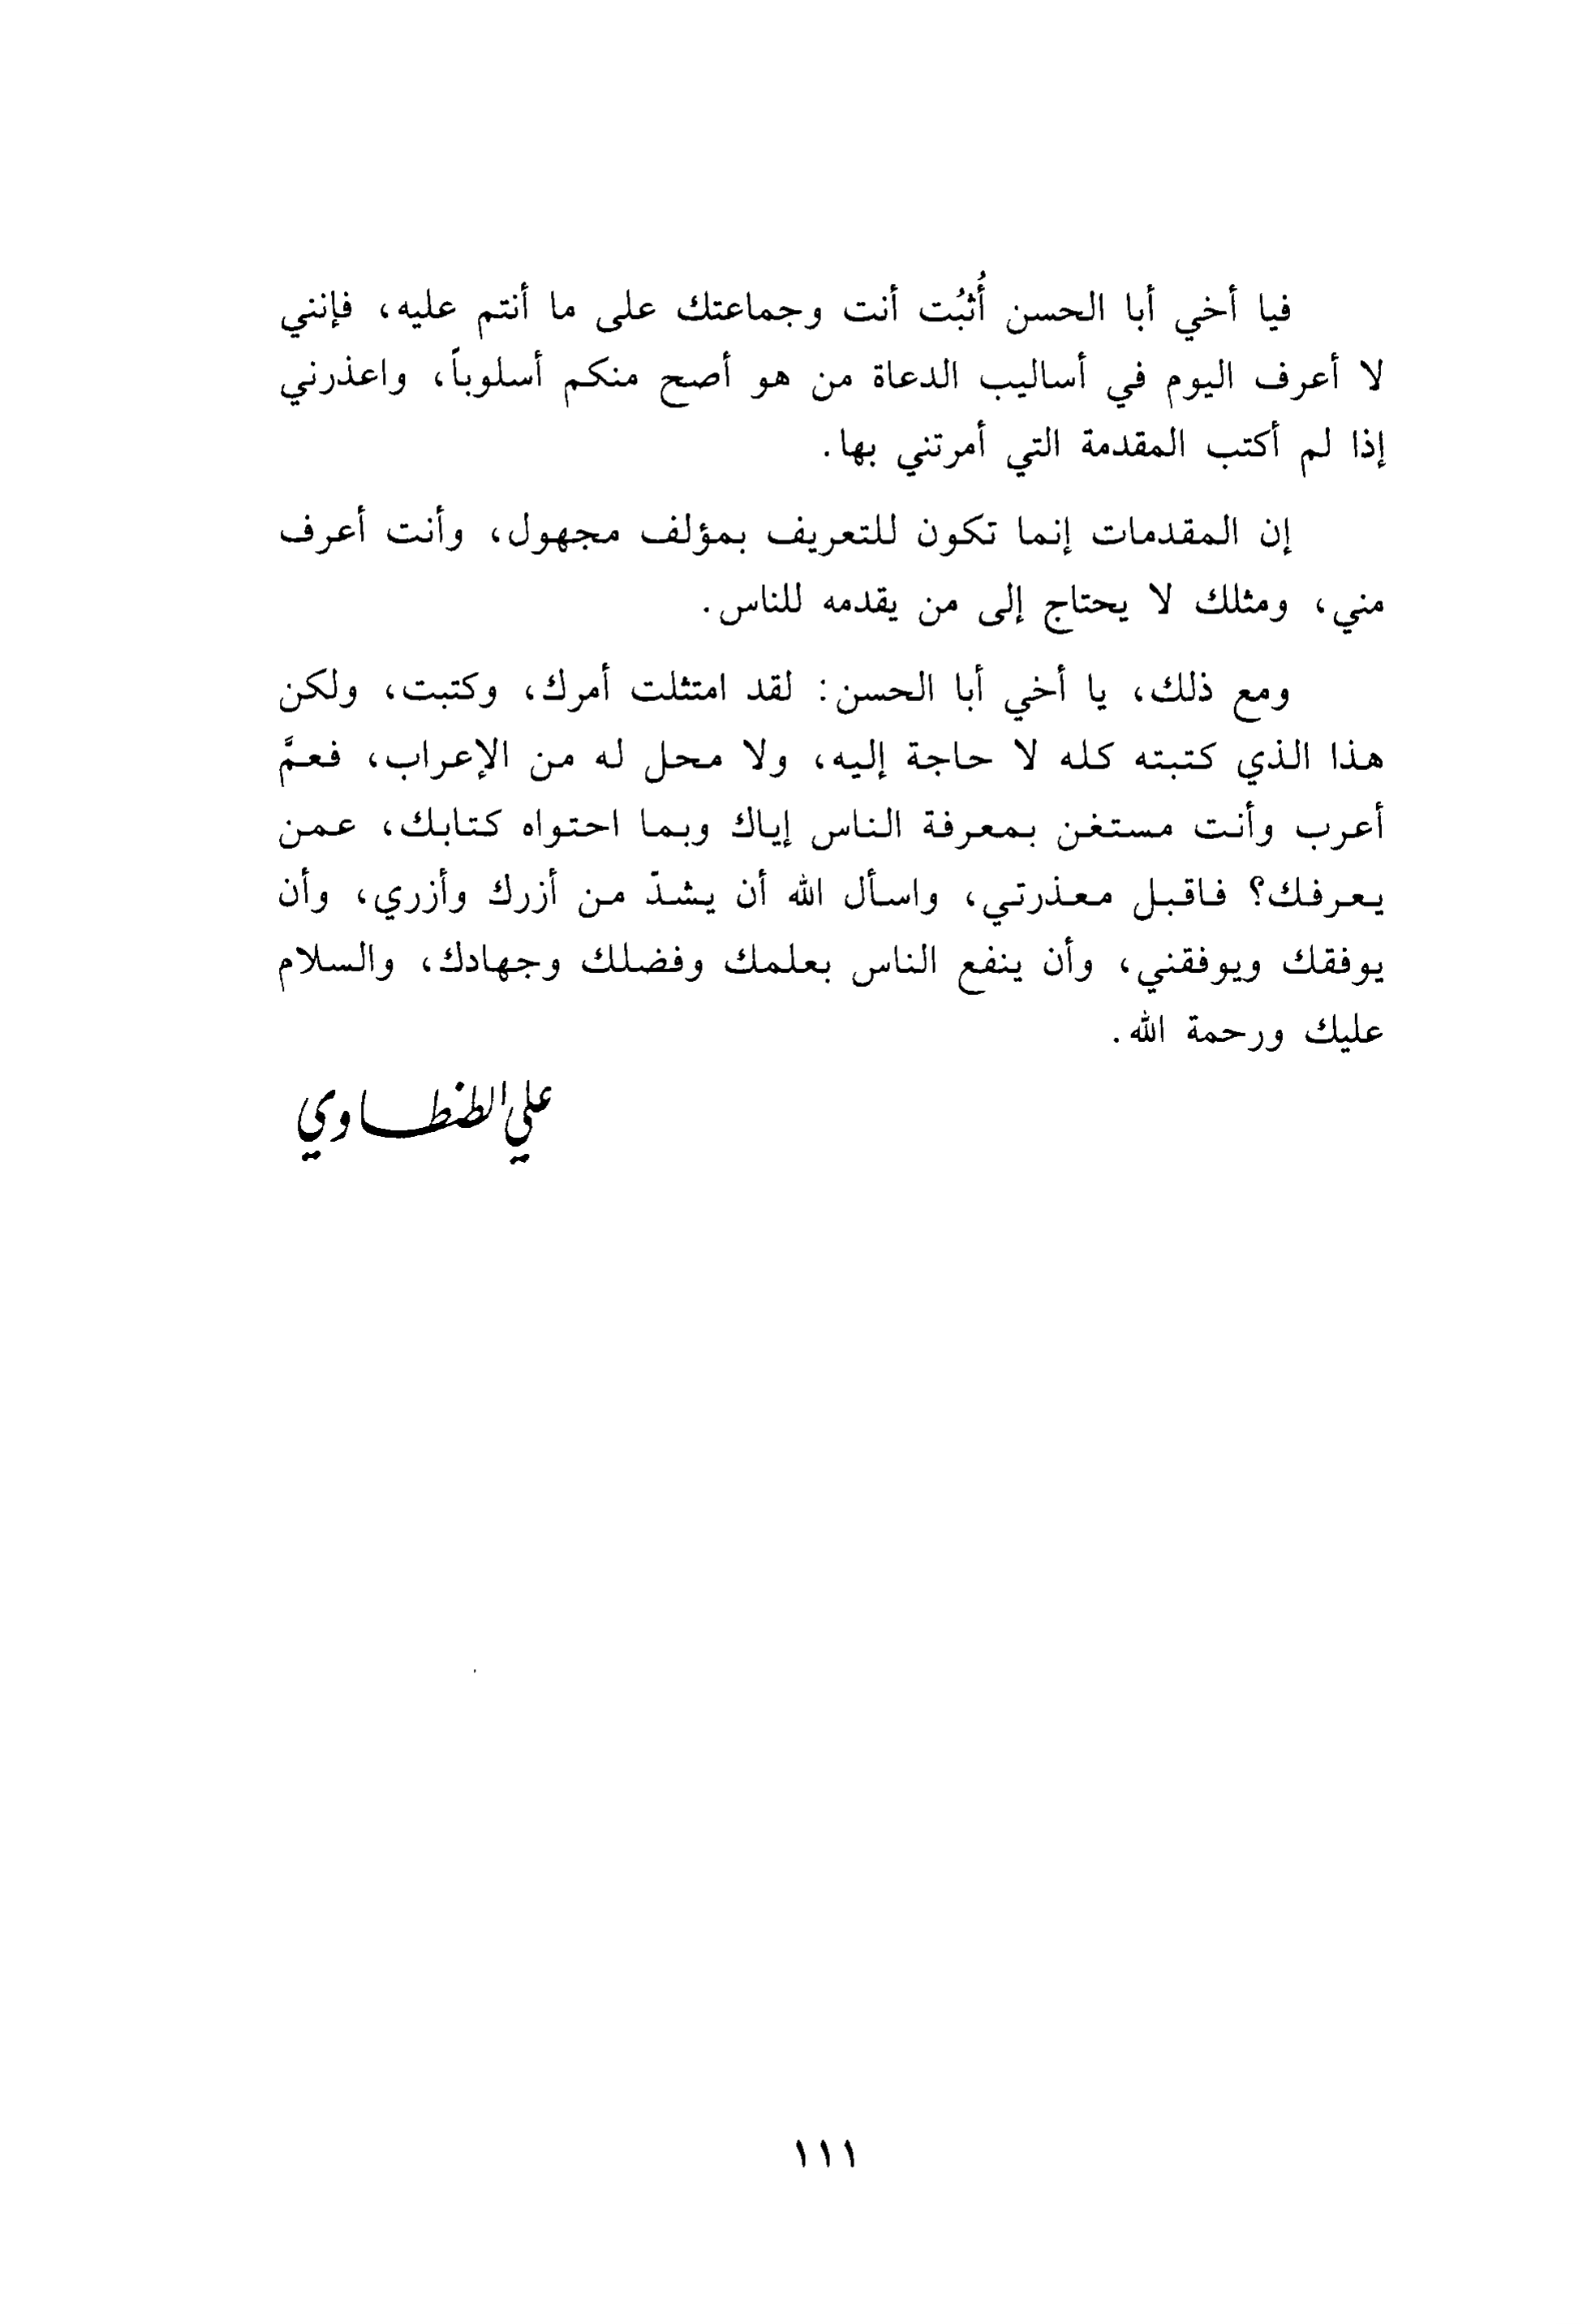 فيا أخي أبا الحسن أُثبُت أنت وجماعتك على ما أنتم عليه، فإنني
لا أعرف اليوم في أساليب الدعاة من هو أصح منكم أسلوباً، واعذرني
إذا لم أكتب المقدمة التي أمرتني بها.
إن المقدمات إنما تكون للتعريف بمؤلف مجهول، وأنت أعرف
مني، ومثلك لا يحتاج إلى من يقدمه للناس.
ومع ذلك، يا أخي أبا الحسن: لقد امتثلت أمرك، وكتبت، ولكن
هذا الذي كتبته كله لا حاجة إليه، ولا محل له من الإعراب، فعمَّ
أعرب وأنت مستغن بمعرفة الناس إياك وبما احتواه كتابك، عمن
يعرفك؟ فاقبل معذرتي، واسأل الله أن يشدّ من أزرك وأزري، وأن
يوفقك ويوفقني، وأن ينفع الناس بعلمك وفضلك وجهادك، والسلام
عليك ورحمة الله.
علي الطنطاوي
١١١